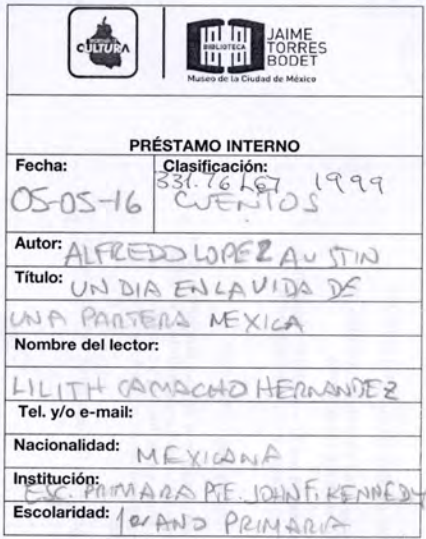 CULTURA
BIBLIOTECA
JAIME
TORRES
BODET
Museo de la Ciudad de México
PRÉSTAMO INTERNO
Fecha: 05-05-16
Clasificación:
331.76 L67 1999
CUENTOS
Autor: ALFREDO LOPEZ AUSTIN
Título: UN DIA EN LA VIDA DE
UNA PARTERA MEXICA
Nombre del lector:
LILITH CAMACHO HERNANDEZ
Tel. y/o e-mail:
Nacionalidad: MEXICANA
Institución:
ESC. PRIMARA PTE. JOHN F. KENNEDY
Escolaridad: 1er AÑO PRIMARIA